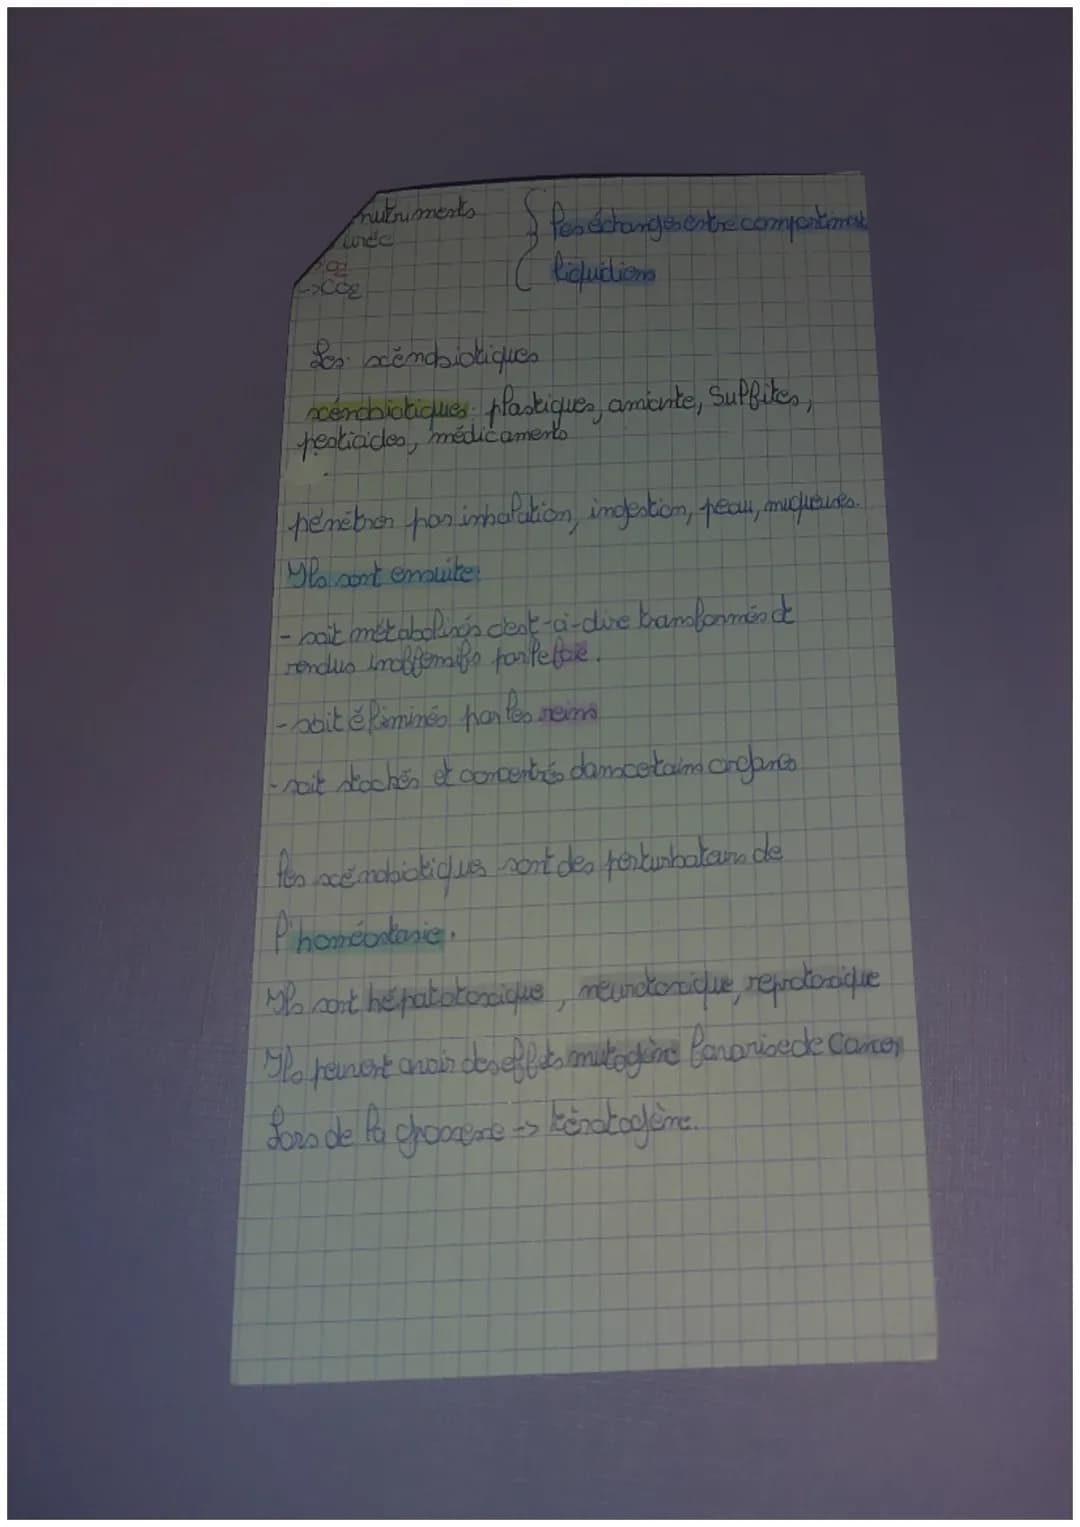 nutriments
urée
O2
->CO2
les échanges entre compartiment
liquidiens
Les xénobiotiques
xénobiotiques: plastiques, amiante, Sulfites,
pesticides, médicaments
pénétrer par inhalation, ingestion, peau, muqueuses.
Ils sont ensuite:
- soit métabolisés c'est-à-dire transformés et
rendus inoffensifs par le foie.
- soit éliminés par les reins
- soit stochés et concentrés dans certains organes
les xénobiotiques sont des perturbateurs de
l'homéostasie.
Ils sont hépatotoxique, neurotoxique, reprotoxique
Ils peuvent avoir des effets mutagène favorise de Cancer
Lors de la grossesse -> tératogène.